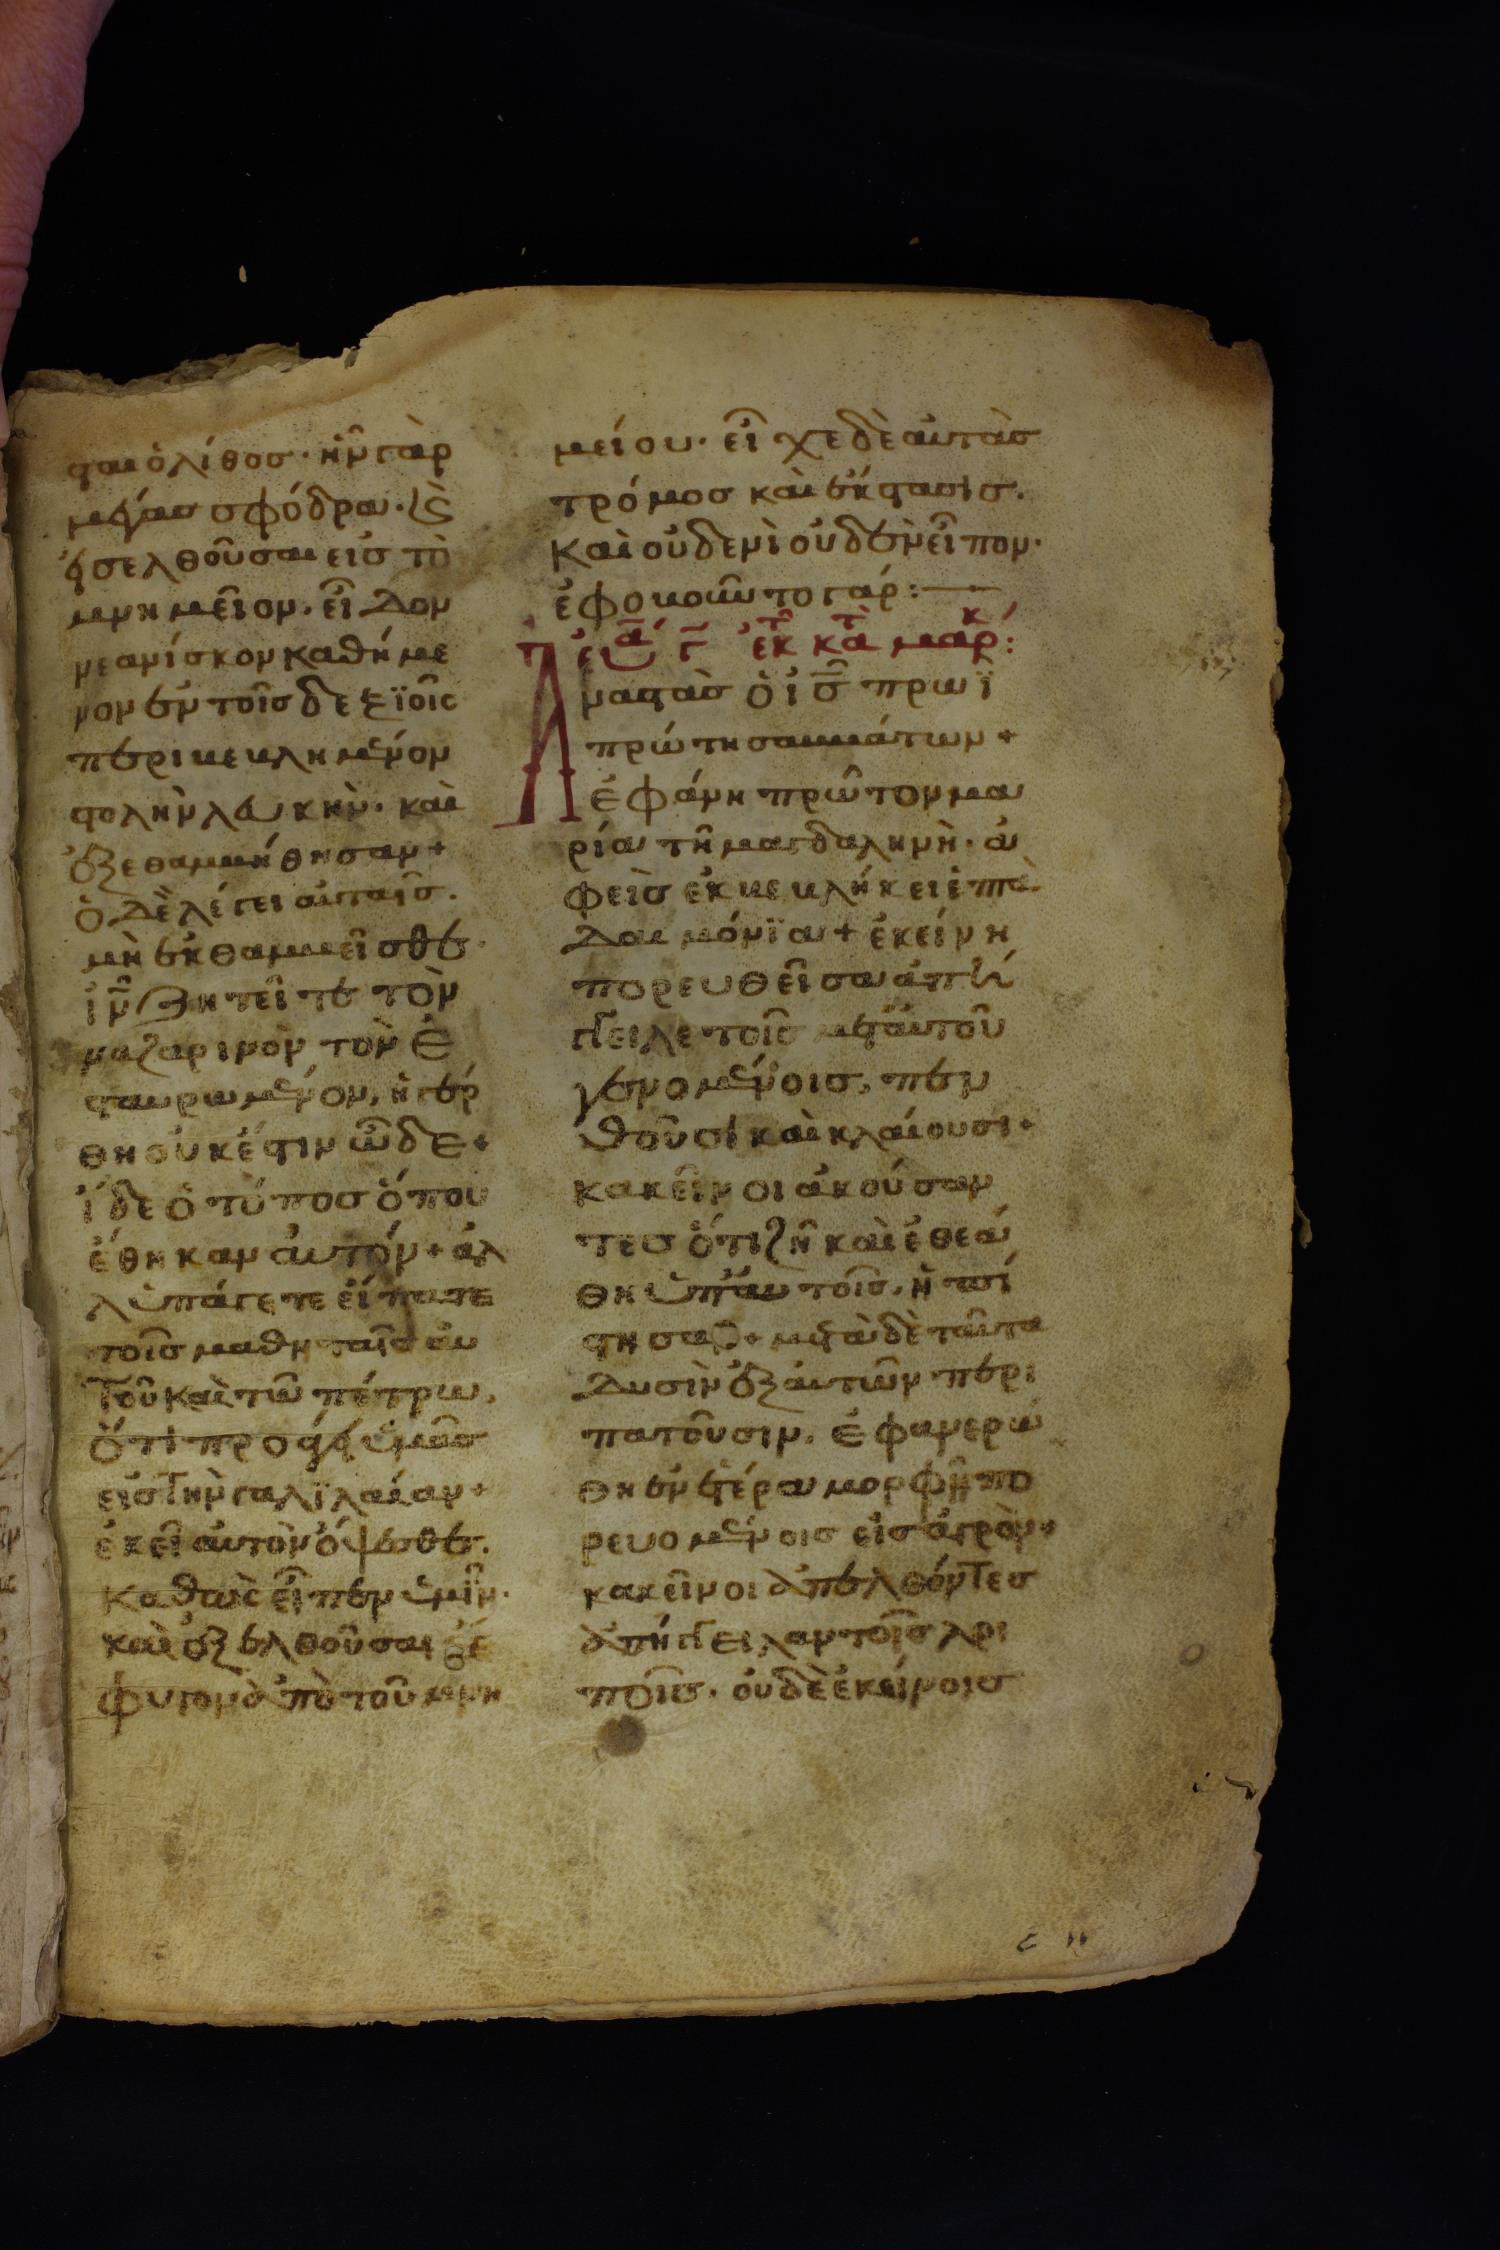 σται ὁ λίθος · ἦν γὰρ
μέγας σφόδρα · καὶ
εἰσελθοῦσαι εἰς τὸ
μνημεῖον, εἶδον
νεανίσκον καθήμε
νον ἐν τοῖς δεξϊοῖς
περικεκλημένον
στολὴν λευκὴν · καὶ
ἐξεθαμμήθησαν +
ὁ δὲ λέγει αὐταῖς .
μὴ ἐκθαμμεῖσθε ·
ἰν ζητεῖτε τὸν
ναζαρινὸν τὸν ἐ
σταυρωμένον, ἠγέρ
θη οὐκ ἔστιν ὧδε +
ἴδε ὁ τύπος ὅπου
ἔθηκαν αὐτόν + ἀλ
λ ὑπάγετε εἴπατε
τοῖς μαθηταῖς αὐ
τοῦ καὶ τῶ πέτρω,
ὅτι προάγει ὑμᾶς
εἰς τὴν γαλϊλαίαν +
ἐκεῖ αὐτὸν ὄψεσθε .
καθὼς εἶπεν ὑμῖν ·
καὶ ἐξελθοῦσαι ἔ
φυγον ἀπὸ τοῦ μνη
μείου · εἶχε δὲ αὐτὰς
τρόμος καὶ ἔκστασις .
καὶ οὐδενὶ οὐδὲν εἶπον ·
ἐφοβοῦντο γάρ : —
εωα γ ἐκ τ κατ μαρκ :
Ἀναστὰς ὁ ις πρωῒ
πρώτη σαμμάτων +
ἐφάνη πρῶτον μα
ρία τῆ μαγδαλινὴ · ἀ
φεὶς ἐκβεβλήκει ἑπτὰ
δαιμόνϊα + ἐκείνη
πορευθεῖσα ἀπήγ
γειλε τοῖς μετ αὐτοῦ
γενομένοις, πεν
θοῦσι καὶ κλαίουσι +
κακεῖνοι ἀκούσαν
τες ὅτι ζῆ καὶ ἐθεά
θη ὑπ αὐτοῖς, ἠπί
στησαν + μετὰ δὲ ταῦτα
δυσὶν ἐξ αὐτῶν περι
πατοῦσιν, ἐφανερώ
θη ἐν ἑτέρα μορφῆ πο
ρευομένοις εἰς ἀγρὸν +
κακεῖνοι ἀπελθόντες
ἀπήγγειλαν τοῖς λοι
ποῖς · οὐδὲ ἐκείνοις